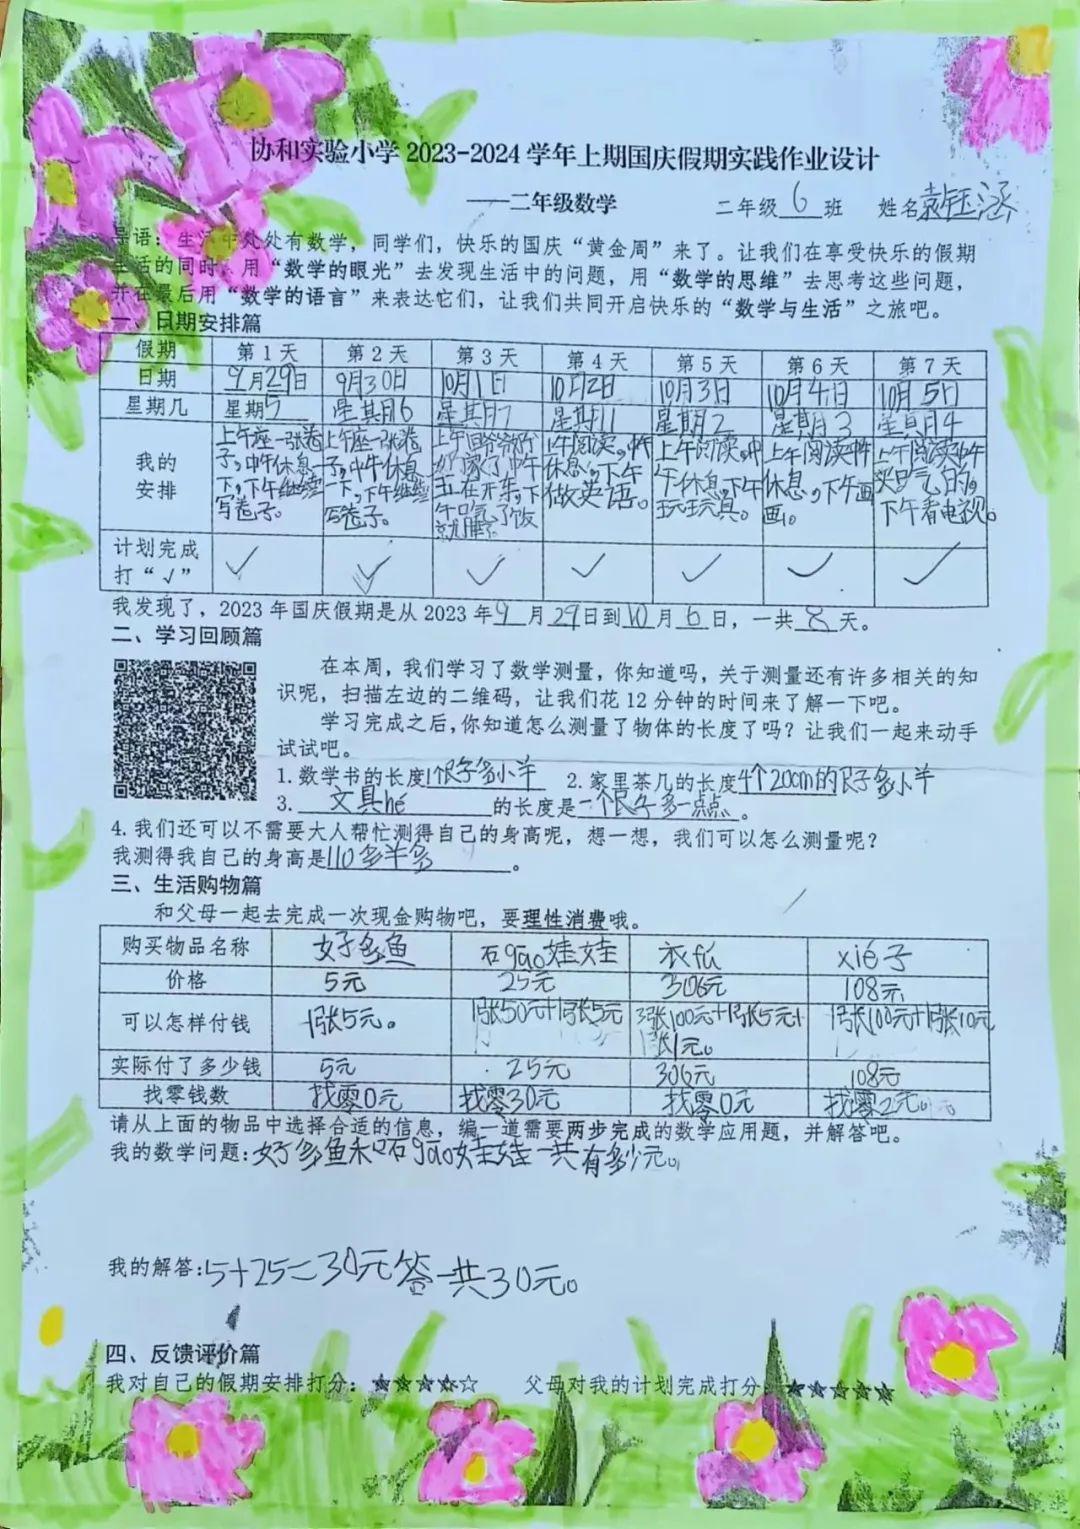 协和实验小学2023-2024学年上期国庆假期实践作业设计
——二年级数学 二年级6班 姓名袁钰涵
导语：生活中处处有数学，同学们，快乐的国庆“黄金周”来了。让我们在享受快乐的假期
生活的同时，用“数学的眼光”去发现生活中的问题，用“数学的思维”去思考这些问题，
并在最后用“数学的语言”来表达它们，让我们共同开启快乐的“数学与生活”之旅吧。
一、日期安排篇
假期 第1天 第2天 第3天 第4天 第5天 第6天 第7天
日期 9月29日 9月30日 10月1日 10月2日 10月3日 10月4日 10月5日
星期几 星期5 星期6 星期7 星期1 星期2 星期3 星期4
我的安排
上午座一张卷子，中午休息一下，下午继续写卷子。
上午座一张卷子，中午休息一下，下午继续写卷子。
上午回爷爷奶奶家了，中午
上午阅读，中午休息，下午做英语。
上午阅读，中午休息，下午玩玩具。
上午阅读，中午休息，下午画画。
上午阅读，中午 下午看电视。
计划完成打“√” ✓ ✓ ✓ ✓ ✓ ✓ ✓
我发现了，2023年国庆假期是从2023年9月29日到10月6日，一共8天。
二、学习回顾篇
在本周，我们学习了数学测量，你知道吗，关于测量还有许多相关的知
识呢，扫描左边的二维码，让我们花12分钟的时间来了解一下吧。
学习完成之后，你知道怎么测量了物体的长度了吗？让我们一起来动手
试试吧。
1.数学书的长度1个尺子多小半 2.家里茶几的长度4个20cm的尺子多小半
3.文具hé的长度是一个尺子多一点点。
4.我们还可以不需要大人帮忙测得自己的身高呢，想一想，我们可以怎么测量呢？
我测得我自己的身高是110多半多。
三、生活购物篇
和父母一起去完成一次现金购物吧，要理性消费哦。
购买物品名称 好多鱼 石gāo娃娃 衣fú xié子
价格 5元 25元 306元 108元
可以怎样付钱 1张5元。 1张50元+1张5元 3张100元+1张5元+1张1元。 1张100元+1张10元
实际付了多少钱 5元 25元 306元 108元
找零钱数 找零0元 找零30元 找零0元 找零2元
请从上面的物品中选择合适的信息，编一道需要两步完成的数学应用题，并解答吧。
我的数学问题：好多鱼和石gāo娃娃一共有多少元。
我的解答：5+25=30元答一共30元。
四、反馈评价篇
我对自己的假期安排打分：★★★★☆ 父母对我的计划完成打分：★★★★★